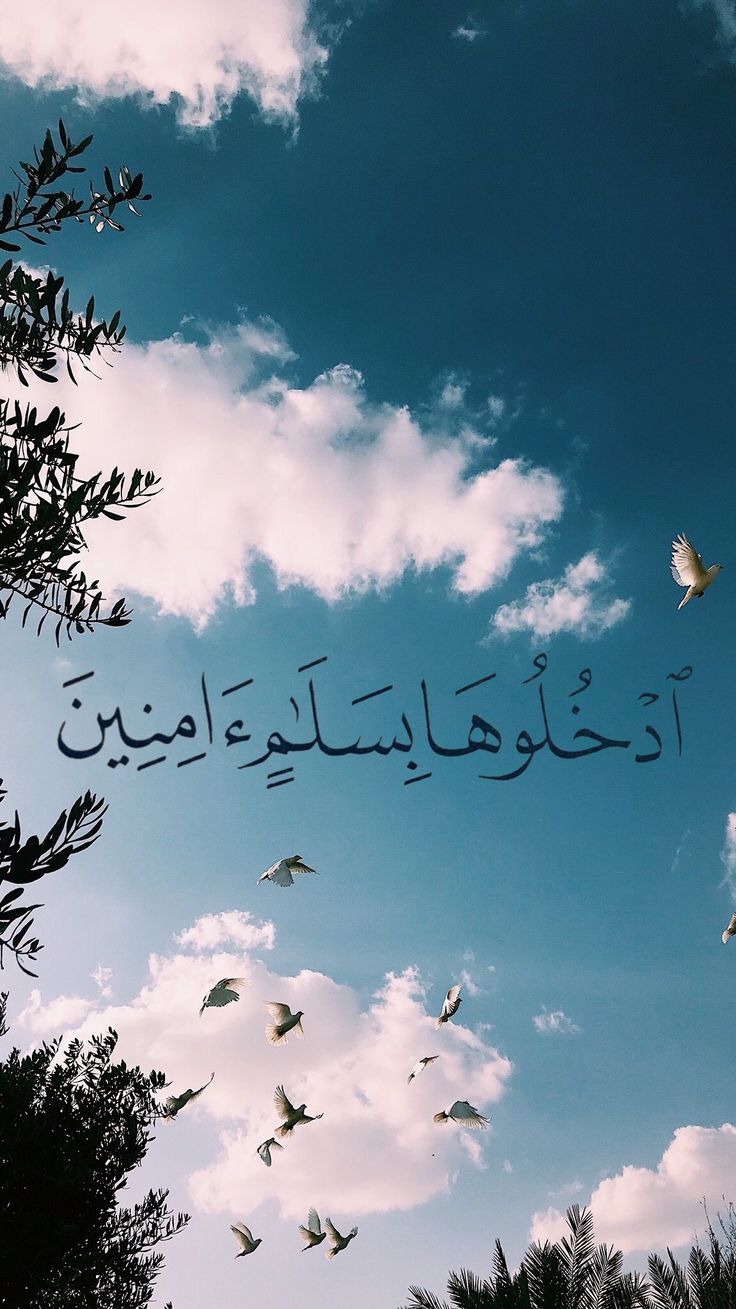 ٱدْخُلُوهَا بِسَلَـٰمٍ ءَامِنِينَ